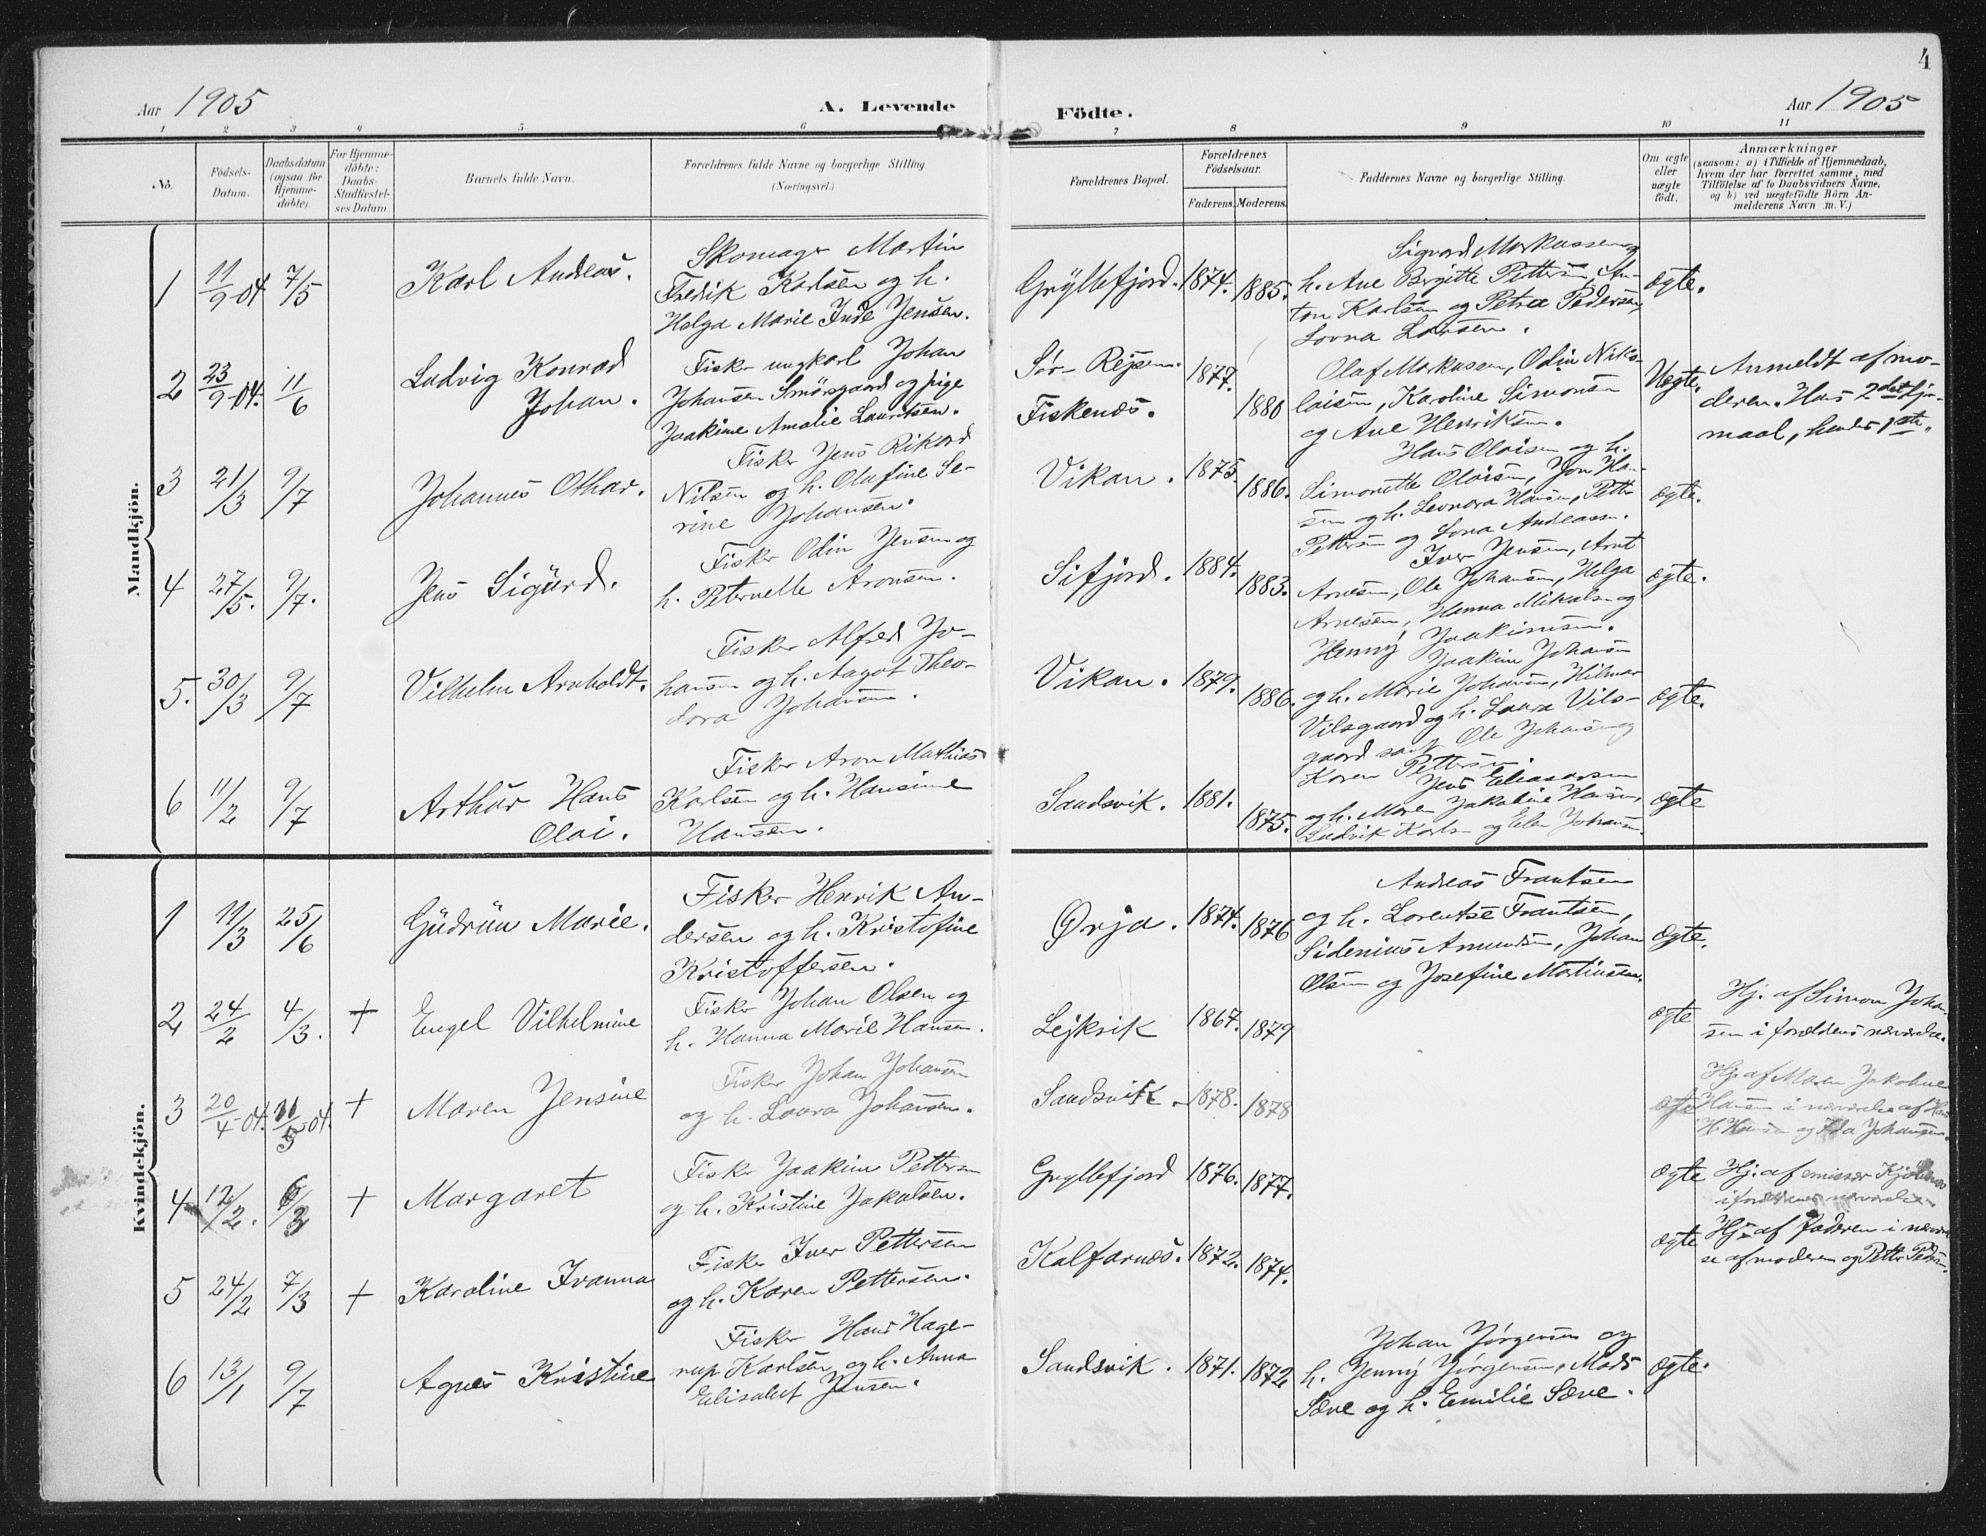 4
Aar 1905
A. Levende
Födte.
Aar 1905
1 2 3 4 5 6 7 8 9 10 11
No.
Födsels-
Datum.
Daabsdatum
(ogsaa for
Hjemme-
döbte).
For Hjemme-
döbte:
Daabs-
Stadfæstel-
ses Datum.
Barnets fulde Navn.
Forældrenes fulde Navne og borgerlige Stilling.
(Næringsvei.)
Forældrenes Bopæl.
Forældrenes
Födselsaar.
Faderens.
Moderens.
Faddernes Navne og borgerlige Stilling.
Om ægte
eller
uægte
födt.
Anmærkninger
(saasom: a) i Tilfælde af Hjemmedaab,
hvem der har forrettet samme, med
Tilföielse af to Daabsvidners Navne,
og b) ved uægtefödte Börn An-
melderens Navn m. V.)
Mandkjön.
1 11/9 04 7/5 Karl Andreas.
Skomager Martin
Fredrik Karlsen og h.
Helga Marie Inde Jensen.
Gryllefjord. 1874. 1885.
Sigvard Markussen og
h. Ane Bergitte Pettersen, An-
ton Karlsen og Petra Pedersen,
Lovna Larsen.
ægte.
2 23/9 04. 11/6 Ludvig Konrad
Johan.
Fisker ungkarl Johan
Johansen Smörsgaard og pige
Joakime Amalie Lauritsen.
Sör-Rejsen.
Fiskenæs.
1877. 1880
Olaf Markussen, Odin Nik-
laisen, Karoline Simonsen
og Ane Henriksen.
Uægte.
Anmeldt af mo-
deren. Hans 2det leier-
maal, hendes 1ste.
3 21/3 9/7 Johannes Othar.
Fisker Jens Rikard
Nilsen og h. Olafine Se-
rine Johansen.
Vikan. 1875. 1886.
Hans Olaisen og h.
Simonette Olaisen, Jon Han-
sen og h. Leonora Hansen, Petter
Pettersen og Lona Andreassen.
ægte.
4 27/5. 9/7. Jens Sigurd.
Fisker Odin Jensen og
h. Peternelle Aronsen.
Sifjord. 1884. 1883.
Iver Jensen, Arnt
Arnesen, Ole Johansen, Helga
Arnesen, Hanna Mikalsen og
Henny Joakimsen.
ægte.
5. 30/3 9/7 Vilhelm Arnholdt.
Fisker Alfred Jo-
hansen og h. Aagot Theo-
dora Johansen.
Vikan. 1879. 1886.
Joakim Johansen
og h. Marie Johansen, Hilmar
Vilsgaard og h. Laura Vils-
gaard samt Ole Johansen og
Karen Pettersen.
ægte.
6 11/2 9/7 Arthur Hans
Olai.
Fisker Aron Mathias
Karlsen og h. Hansine
Hansen.
Sandsvik. 1881. 1875.
Jens Eliasarsen
og h. Maren Jakobine Hansen,
Ludvik Karlsen og Elen Johansen.
ægte
Kvindekjön.
1 11/3 25/6 Gudrun Marie.
Fisker Henrik An-
dersen og h. Kristofine
Kristoffersen.
Ørja. 1874. 1876
Andreas Frantsen
og h. Lorentse Frantsen,
Sidenius Amundsen, Johan
Olsen og Josefine Martinussen.
ægte.
2 24/2 4/3. + Engel Vilhelmine
Fisker Johan Olsen og
h. Hanna Marie Hansen.
Lejkvik 1867. 1879
ægte
Hj. af Simon Johan-
sen i forældrenes nærværelse.
3 20/4 04. 11/5 04. + Maren Jensine
Fisker Johan Johansen
og h. Laura Johansen.
Sandsvik. 1878. 1878
ægte
Hj. af Maren Jakobine
Hansen i nærværelse af Hans
H. Hansen og Ida Johansen.
4 12/2. 6/3 + Margaret
Fisker Joakim Pettersen
og h. Kristine Jakobsen.
Gryllefjord 1876. 1877.
ægte
Hj. af emissær Kjölnæs
i forældrenes nærværelse
5 24/2 7/3 + Karoline Ivanna
Fisker Iver Pettersen
og h. Karen Pettersen.
Kalfarnæs. 1872. 1874.
ægte
Hj. af faderen i nærværel-
se af moderen og Petter Pedersen.
6 13/1 9/7 Agnes Kristine
Fisker Hans Hage-
rup Karlsen og h. Anna
Elisabet Jensen.
Sandsvik. 1871. 1872
Johan Jörgensen og
h. Jenny Jörgensen, Mads
Sæve og h. Emilie Sæve.
ægte.